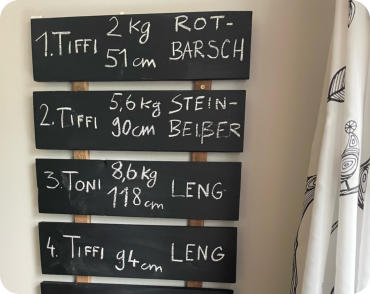 1. TIFFI 2 kg ROT-
51 cm BARSCH
2. TIFFI 5,6 kg STEIN-
90 cm BEIßER
3. TONI 8,6 kg LENG
118 cm
4. TIFFI 94 cm LENG